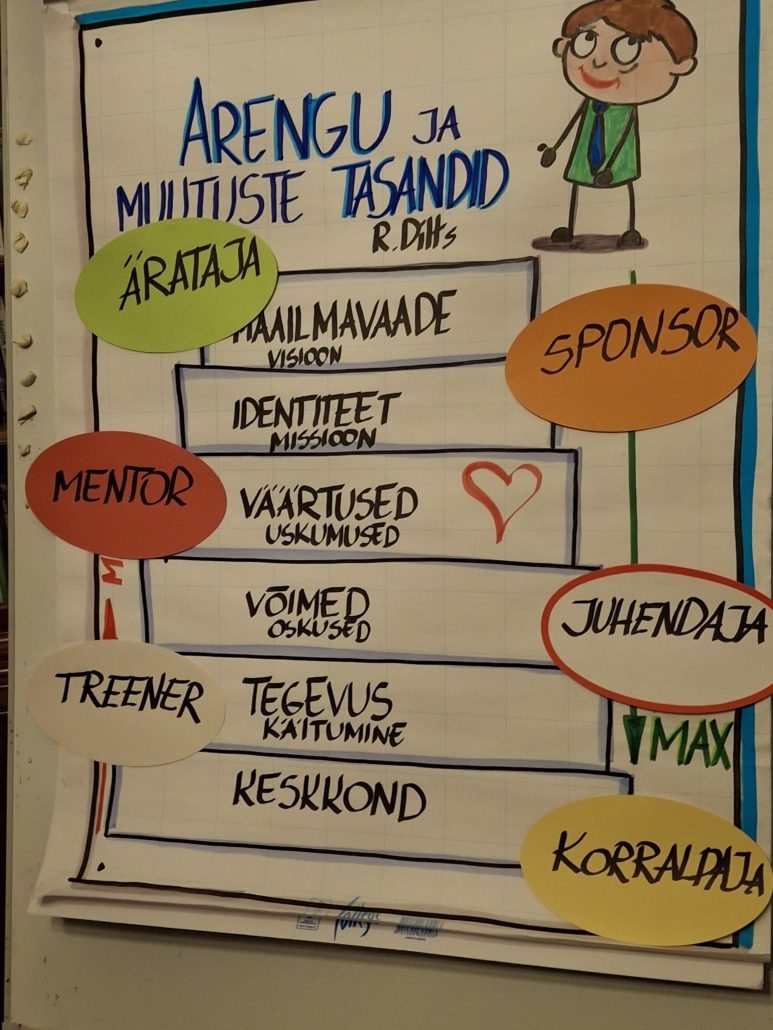 ARENGU JA
MUUTUSTE TASANDID
R. Dilts
ÄRATAJA
MAAILMAVAADE
VISIOON
SPONSOR
IDENTITEET
MISSIOON
MENTOR
VÄÄRTUSED
USKUMUSED
M
VÕIMED
OSKUSED
JUHENDAJA
TREENER
TEGEVUS
KÄITUMINE
MAX
KESKKOND
KORRALDAJA